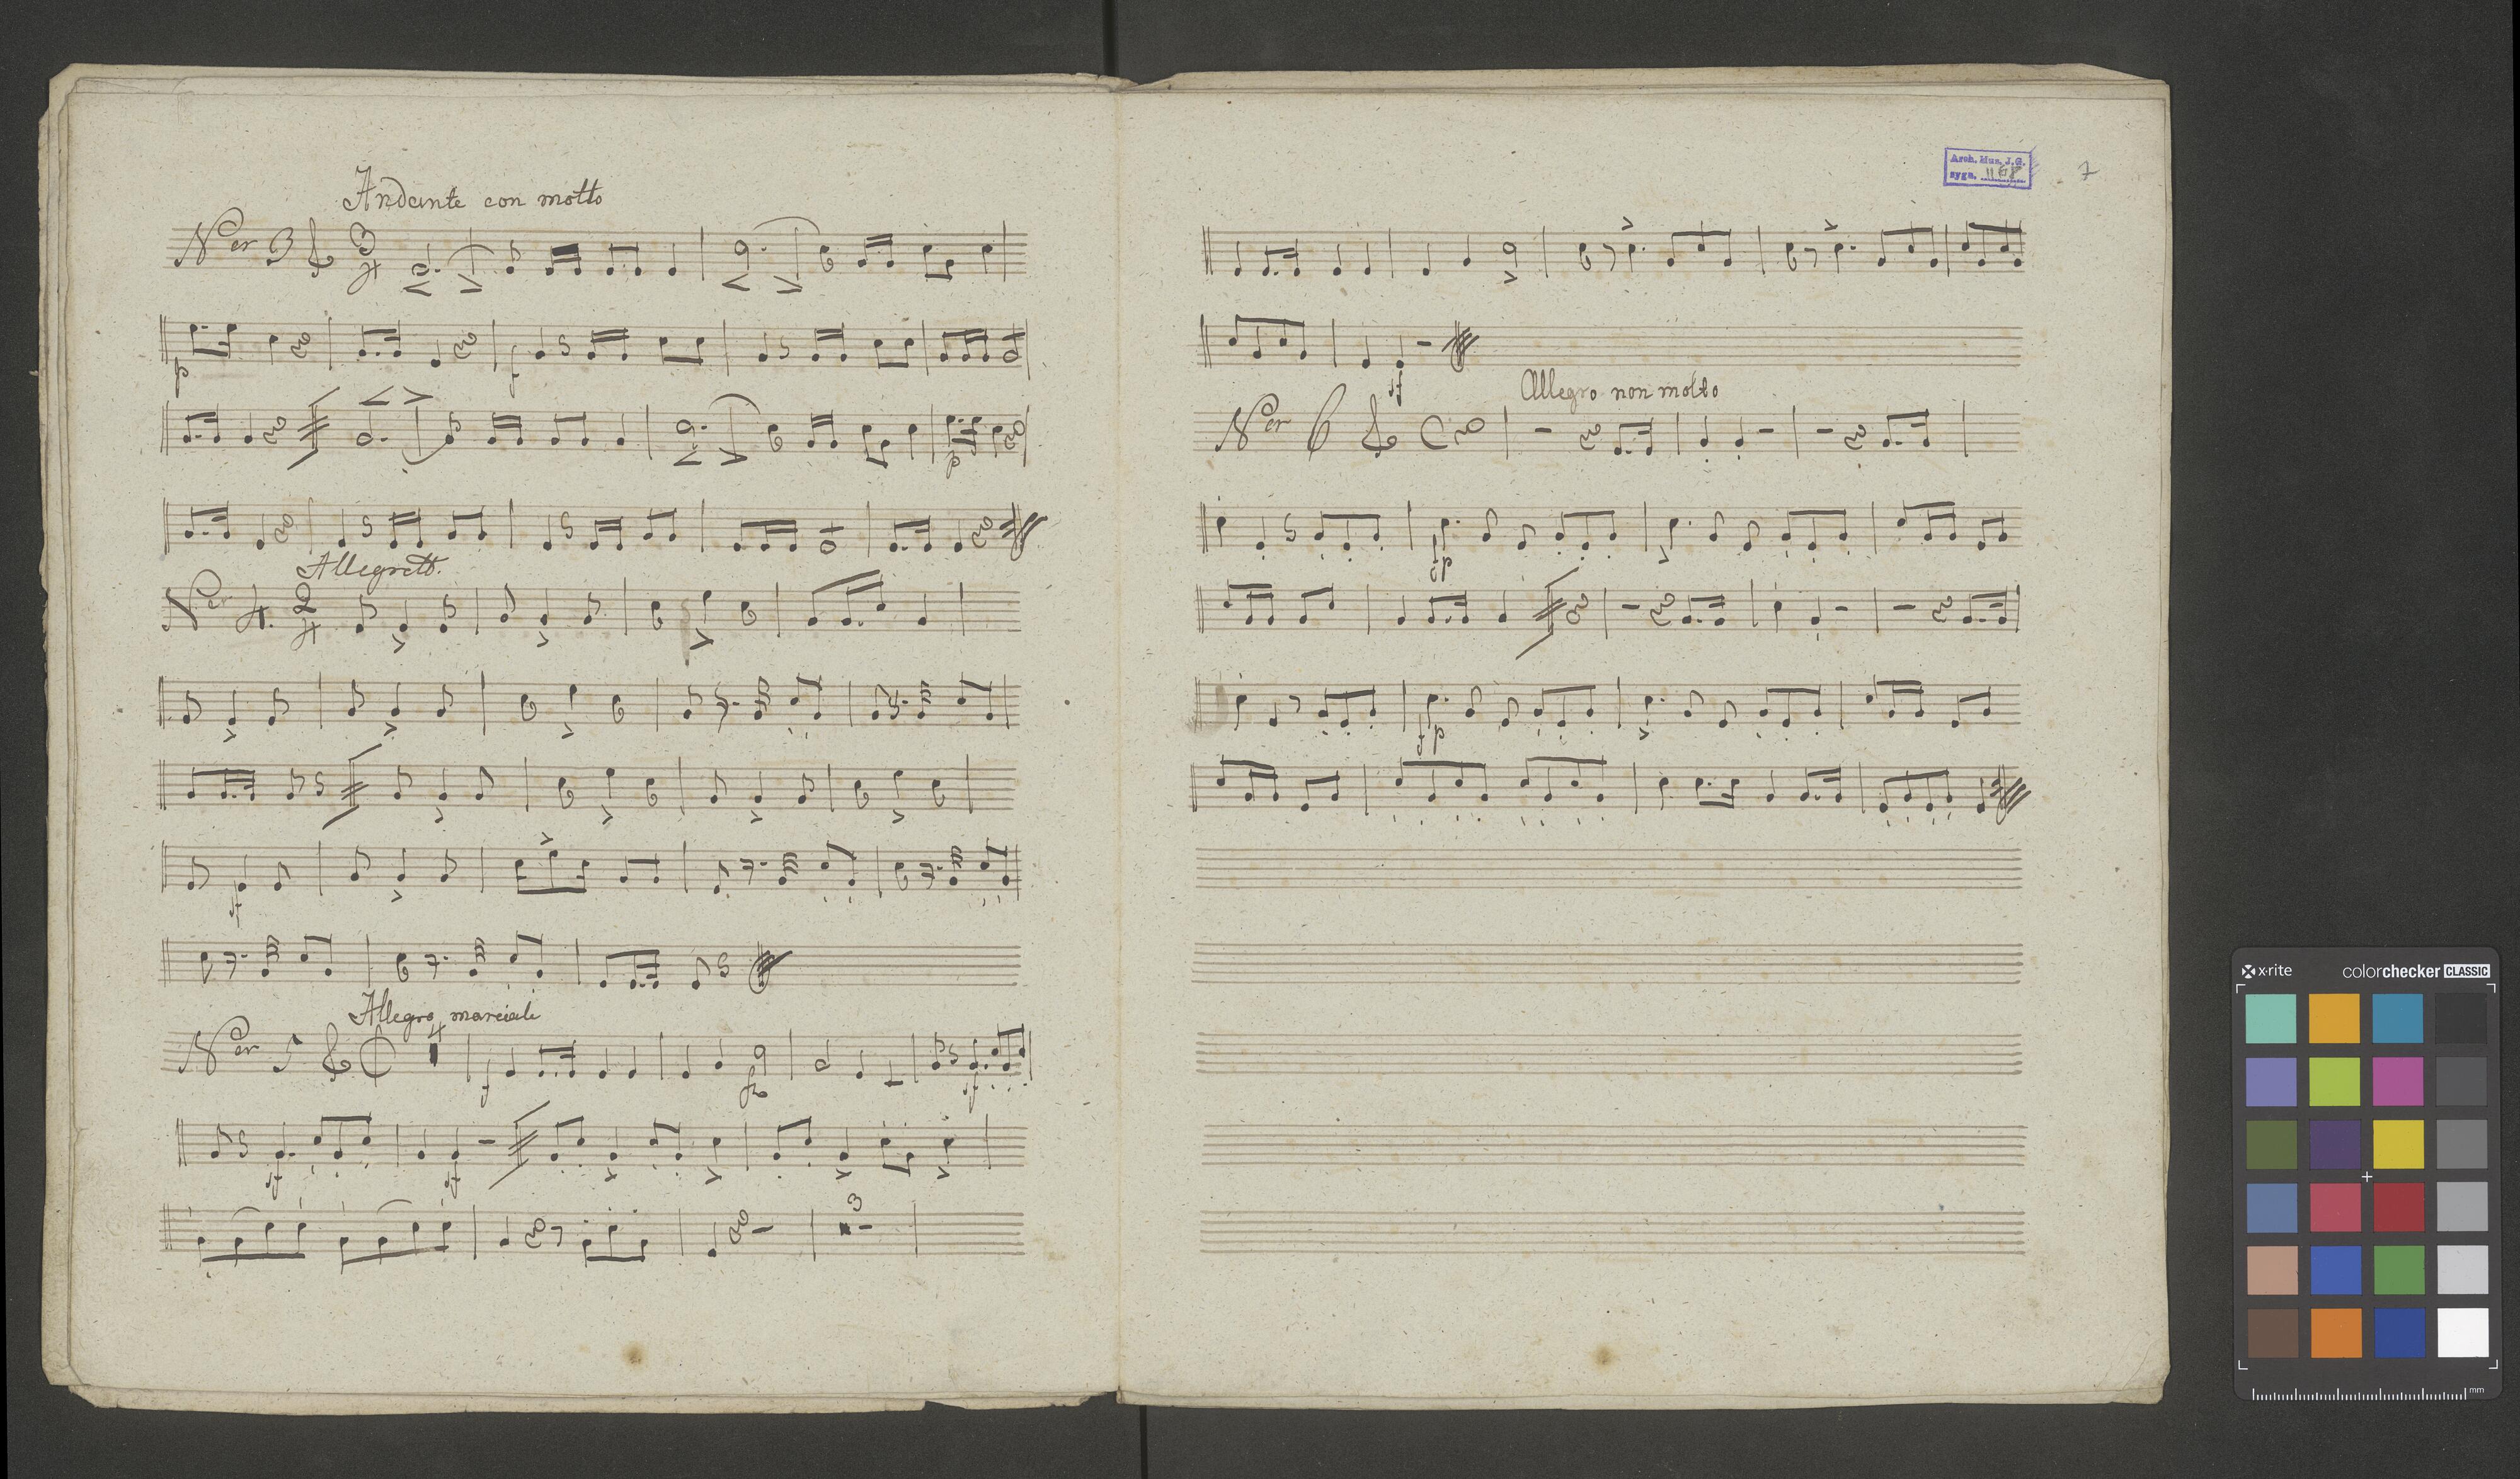 Andante con motto
Ner 3 3 4
p
f
p
Allegrett.
Ner 4. 2 4
sf
Allegro marciale
Ner 5 4
f fz sf
sf sf
3
Arch. Mus. J.G.
sygn. 1168
7
sf
Allegro non molto
Ner 6 C
fp
fp
x·rite colorchecker CLASSIC
mm